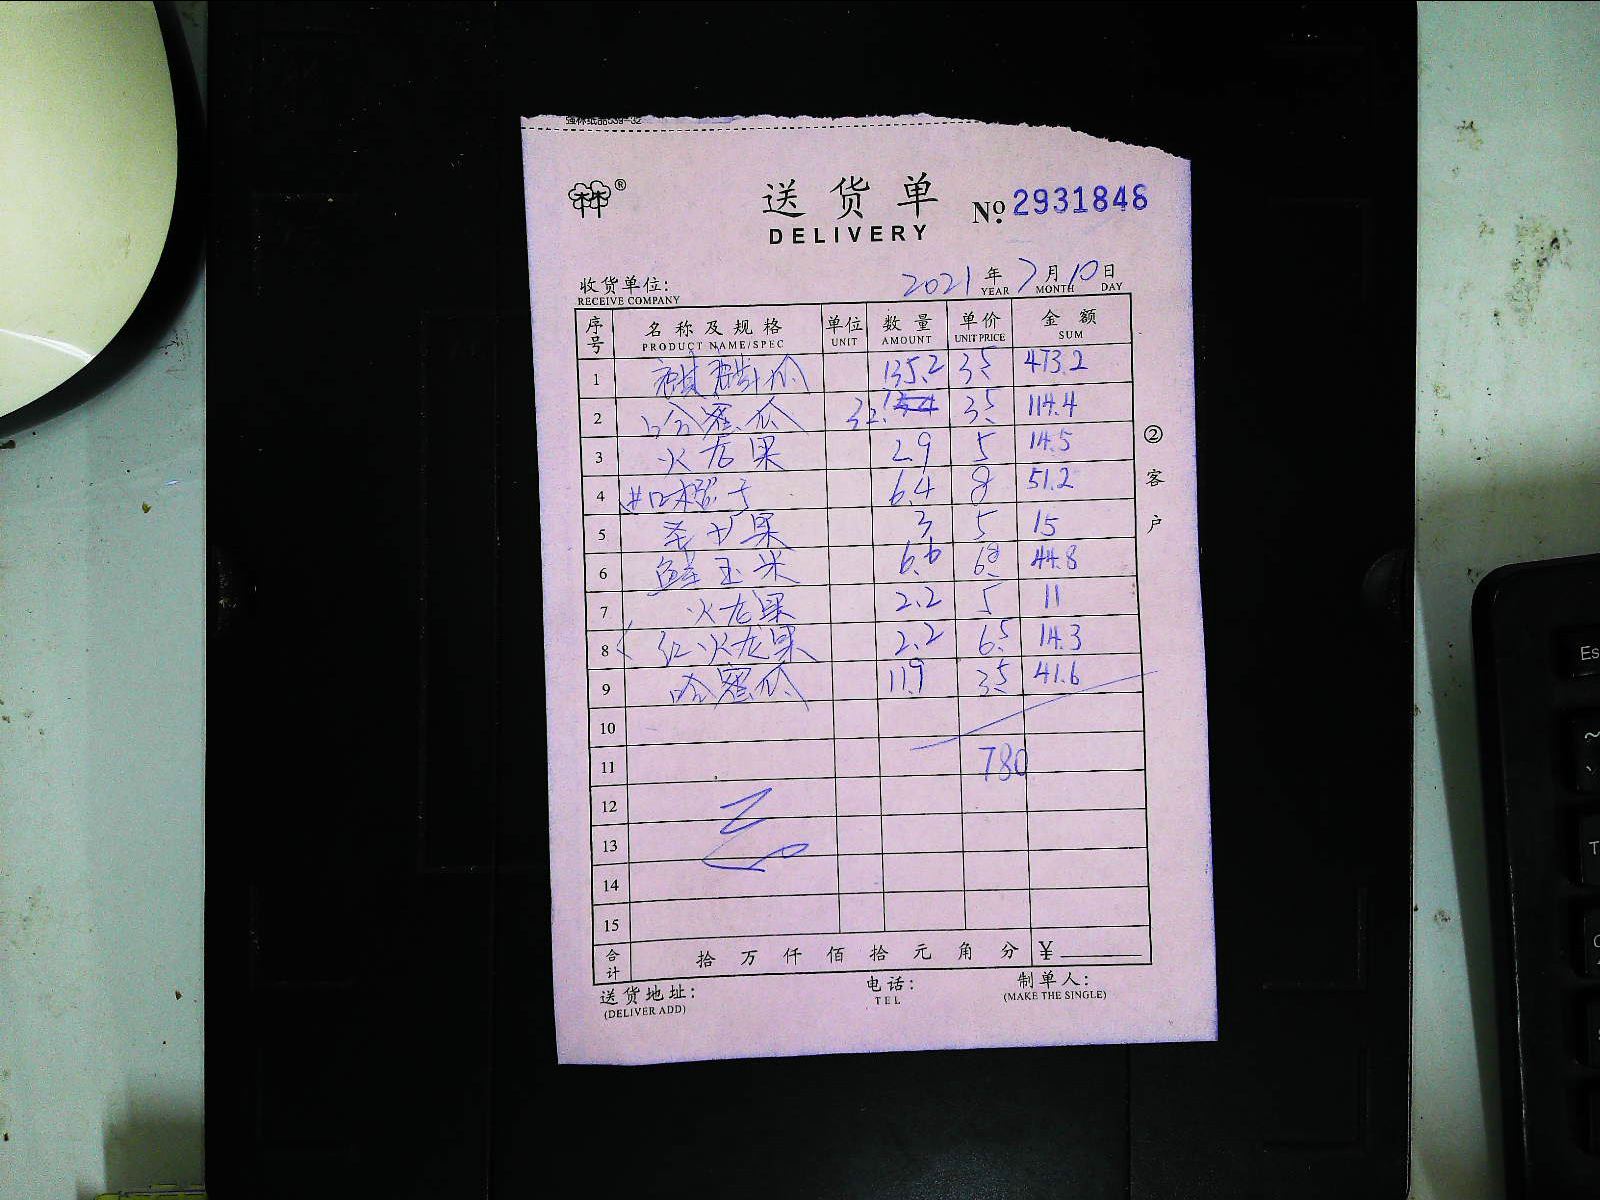 强林纸品539-32
林®
送货单
DELIVERY
No. 2931846
收货单位:
RECEIVE COMPANY
2021年7月10日
YEAR MONTH DAY
序号 名称及规格 单位 数量 单价 金额
PRODUCT NAME/SPEC UNIT AMOUNT UNIT PRICE SUM
1 麒麟瓜 135.2 3.5 473.2
2 哈密瓜 32. 3.5 114.4
3 火龙果 2.9 5 14.5
4 进口橙子 6.4 8 51.2
5 圣女果 3 5 15
6 鲜玉米 6.6 6.8 44.8
7 火龙果 2.2 5 11
8 红火龙果 2.2 6.5 14.3
9 哈蜜瓜 11.9 3.5 41.6
10
11 780
12
13
14
15
合计 拾万仟佰拾元角分 ¥
送货地址: 电话: 制单人:
(DELIVER ADD) TEL (MAKE THE SINGLE)
②客户
Es